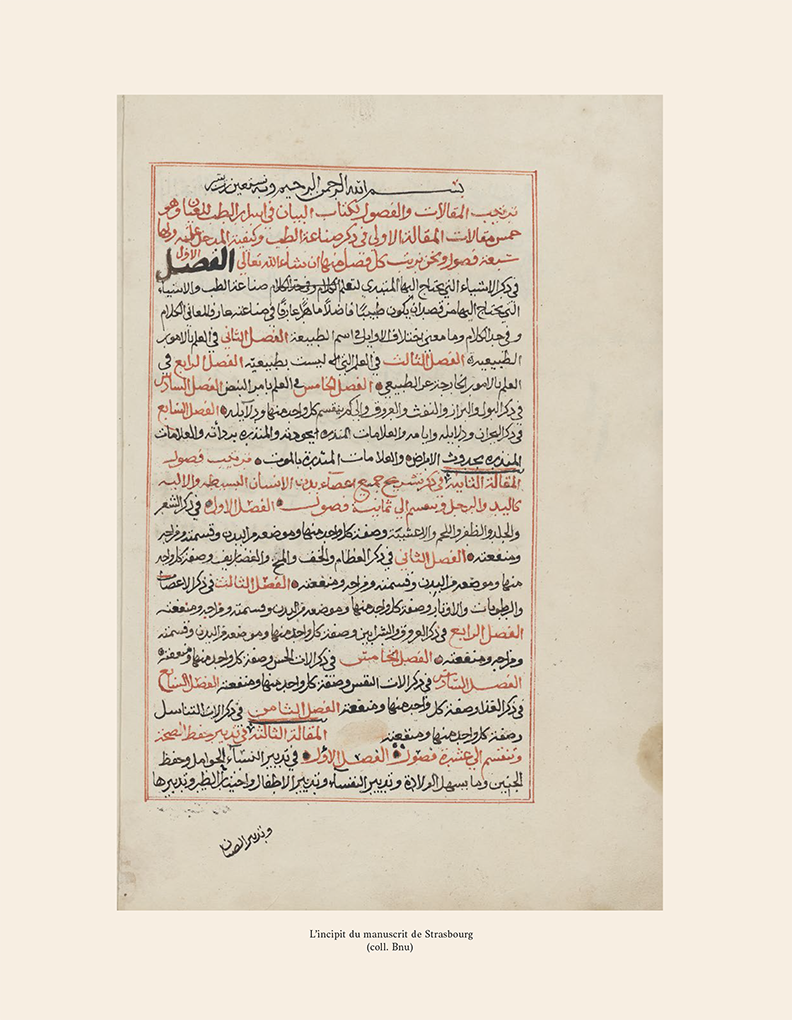 بسم الله الرحمن الرحيم وبه نستعين
ترتيب المقالات والفصول لكتاب البيان في اسرار الطب للعيان وهو
خمس مقالات المقالة الاولى في ذكر صناعة الطب وكيفية المدخل عليه ولها
سبعة فصول ونحن نرتب كل فصل منها ان شاء الله تعالى الفصل الاول
في ذكر الاشياء التي يحتاج اليها المبتدي لتعلم صناعة الطب والاشياء
التي يحتاج اليها من قصد ان يكون طبيبًا فاضلًا ماهرًا عارفًا في صناعته عارف لمعاني الكلام
و في حد الكلام وما معنى اختلاف الاوايل في اسم الطبيعة الفصل الثاني في العلم بالامور
الطبيعية الفصل الثالث في العلم التي ليست بطبيعية الفصل الرابع في
العلم بالامور الخارجة عن الطبيعي الفصل الخامس في العلم بامر النبض الفصل السادس
في ذكر البول والبراز والنفث والعروق والى كم ينقسم كل واحد منها ودلايله الفصل السابع
في ذكر البحران ودلايله وايامه والعلامات المنذرة بجودته والمنذره برداته والعلامات
المنذره بحدوث الامراض والعلامات المنذرة بالموت ترتيب فصول
المقالة الثانية في ذكر تشريح جميع اعضاء بدن الانسان البسيطه والاليه
كاليد والرجل وتنقسم الى ثمانية فصول الفصل الاول في ذكر الشعر
والجلد والظفر واللحم والاغشية وصفة كل واحد منها وموضعه من البدن وقسمته ومزاجه
ومنفعته الفصل الثاني في ذكر العظام والمخ والغضاريف وصفة كل واحد
منها وموضعه من البدن وقسمته ومزاجه ومنفعته الفصل الثالث في ذكر الاعصاب
والرطوبات والاوتار وصفة كل واحد منها وموضعه من البدن وقسمته ومزاجه ومنفعته
الفصل الرابع في ذكر العروق والشرايين وصفة كل واحد منها وموضعه من البدن وقسمته
ومزاجه ومنفعته الفصل الخامس في ذكر الات الحس وصفة كل واحد منها ومنفعته
الفصل السادس في ذكر الات النفس وصفة كل واحد منها ومنفعته الفصل السابع
في ذكر الغذا وصفة كل واحد منها ومنفعته الفصل الثامن في ذكر الات التناسل
وصفة كل واحد منها ومنفعته المقالة الثالثة في تدبير حفظ الصحة
وتنقسم الى عشرة فصول الفصل الاول في تدبير النساء الحوامل وحفظ
الجنين وما يسهل الولادة وتدبير النفساء وتدبير الاطفال واختيار الظير وتدبيرها
وتدبير الصبيان
L'incipit du manuscrit de Strasbourg
(coll. Bnu)